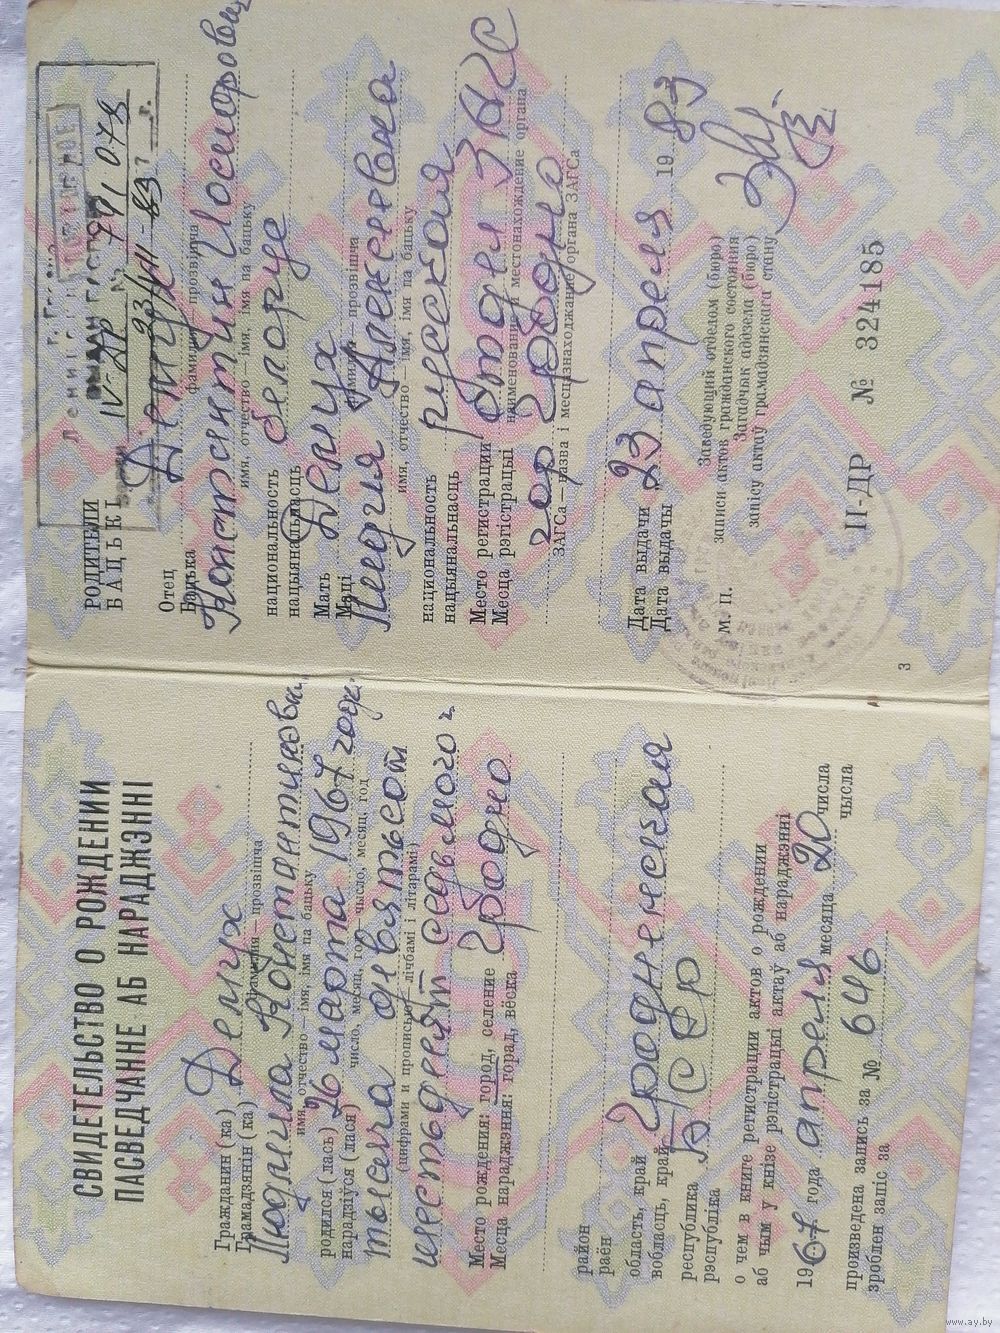 СВИДЕТЕЛЬСТВО О РОЖДЕНИИ
ПАСВЕДЧАННЕ АБ НАРАДЖЭННІ
Гражданин (ка)
Грамадзянін (ка) Делух
фамилия — прозвішча
Людмила Константиновна
имя, отчество — імя, імя па бацьку
родился (лась) 26 марта 1967 года
нарадзіўся (лася)
число, месяц, год — чысло, месяц, год
тысяча девятьсот
(цифрами и прописью — лічбамі і літарамі)
шестьдесят седьмого г.
Место рождения: город, селение Гродно
Месца нараджэння: горад, вёска
район
раён
область, край Гродненская
вобласць, край
республика БССР
рэспубліка
о чем в книге регистрации актов о рождении
аб чым у кнізе рэгістрацыі актаў аб нараджэнні
1967 года апреля месяца 20 числа
чысла
произведена запись за № 646
зроблен запіс за
РОДИТЕЛИ
БАЦЬКІ
IV-ДР № 741078
Отец Делух
Бацька
фамилия — прозвішча
Константин Иосифович
имя, отчество — імя, імя па бацьку
национальность белорус
нацыянальнасць
Мать Делух
Маці
фамилия — прозвішча
Лидия Алексеевна
имя, отчество — імя, імя па бацьку
национальность русская
нацыянальнасць
Место регистрации отдел ЗАГС
Месца рэгістрацыі
наименование и местонахождение органа
гор Гродно
ЗАГСа — назва і месцазнаходжанне органа ЗАГСа
Дата выдачи 23 апреля 1983
Дата выдачы
М. П.
Заведующий отделом (бюро)
записи актов гражданского состояния
Загадчык аддзела (бюро)
запісу актаў грамадзянскага стану
II-ДР № 324185
3
www.ay.by